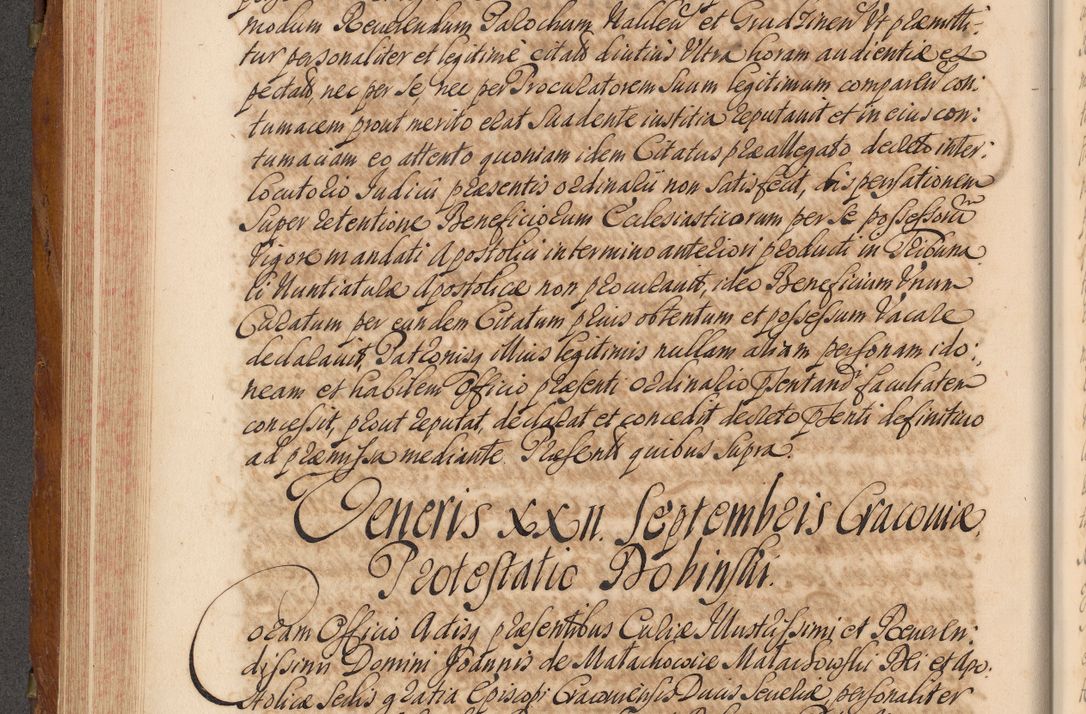 modum Reverendum Parochum Halileń et Grudzinen Vt præmitti:
tur personaliter et legitime citato diutius Vltra horam audientiæ ex
pectato, nec per se, nec per Procuratorem suum legitimum comparen con:
tumacem prout merito erat suadente iustitia reputauit et in eius con:
tumaciam eo attento quoniam idem Citatus præallegato decreto inter:
locutorio Iudicii præsentis ordinarii non satisfecit, dispensationem
super retentione Beneficiorum Ecclesiasticorum per se possessorum
Vigore mandati Apostolici in termino anteriori producti in Tribuna
li Nuntiaturæ Apostolicæ non procurauit, ideo Beneficium Vnum
Curatum per eundem Citatum prius obtentum et possessum Vacare
declarauit, Patronisq illius legitimis nullam aliam personam ido:
neam et habilem Officio præsenti ordinario pntand facultatem
concessit, prout reputat, declarat et concedit decreto pnti definitiuo
ad præmissa mediante. Præsent quibus supra.
Veneris XXII. Septembris Cracouiæ.
Protestatio Dobinski.
Coram Officio Actisq præsentibus Curiæ Illustrissimi et Reueren:
dissimi Domini Joannis de Małachowice Małachowski Dei et Apo:
stolicæ Sedis gratia Episcopi Cracouiensis Ducis Seueriæ, personaliter